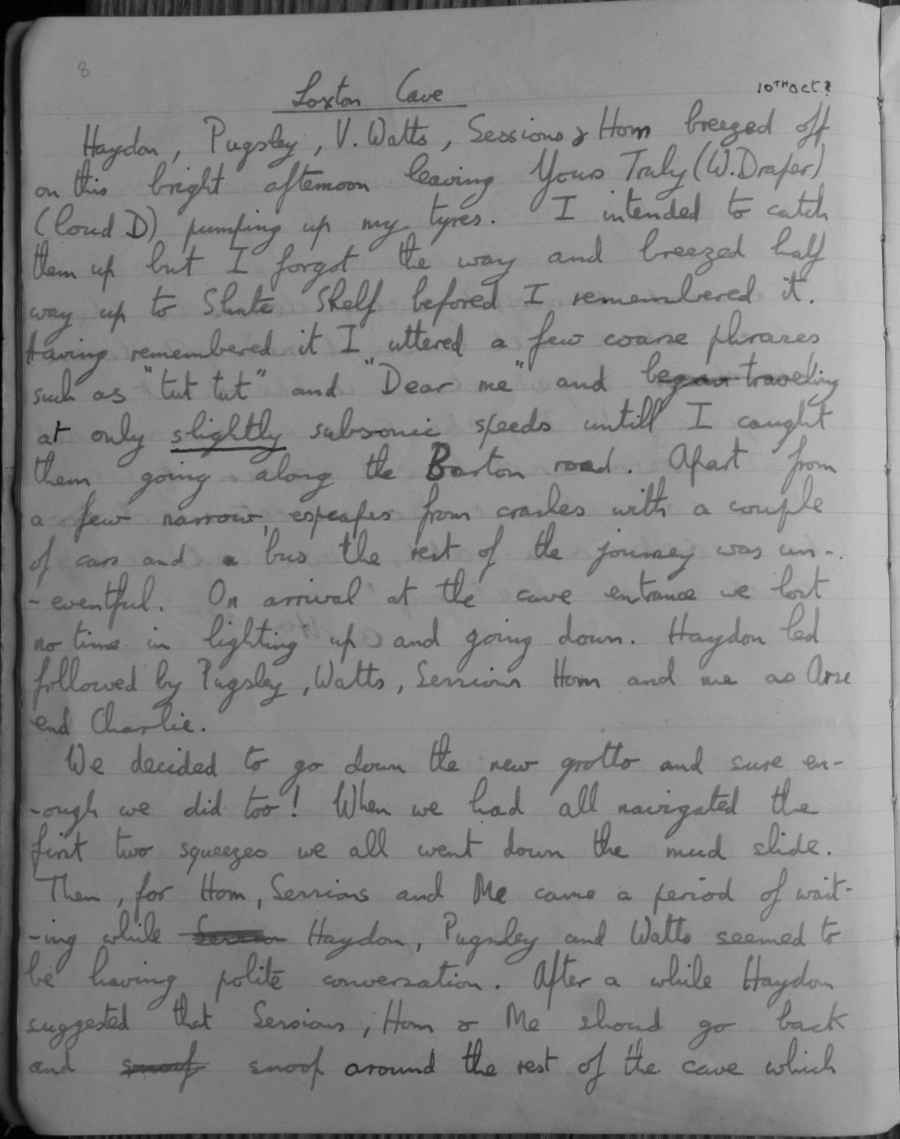 8
Loxton Cave
10TH Oct?
Haydon, Pugsley, V. Watts, Sessions & Hom breezed off
on this bright afternoon leaving Yours Truly (W. Draper)
(loud D) pumping up my tyres. I intended to catch
them up but I forgot the way and breezed half
way up to Shute Shelf befored I remembered it.
Having remembered it I uttered a few coarse phrases
such as "tut tut" and "Dear me" and began traveling
at only slightly subsonic speeds untill I caught
them going along the Barton road. Apart from
a few narrow espcapes from crashes with a couple
of cars and a bus the rest of the journey was un-
-eventful. On arrival at the cave entrance we lost
no time in lighting up and going down. Haydon led
followed by Pugsley, Watts, Sessions Hom and me as Arse
end Charlie.
We decided to go down the new grotto and sure en-
-ough we did too! When we had all navigated the
first two squeezes we all went down the mud slide.
Then, for Hom, Sessions and Me came a period of wait-
-ing while Haydon, Pugsley and Watts seemed to
be having polite conversation. After a while Haydon
suggested that Sessions, Hom & Me shoud go back
and snoop snoop around the rest of the cave which